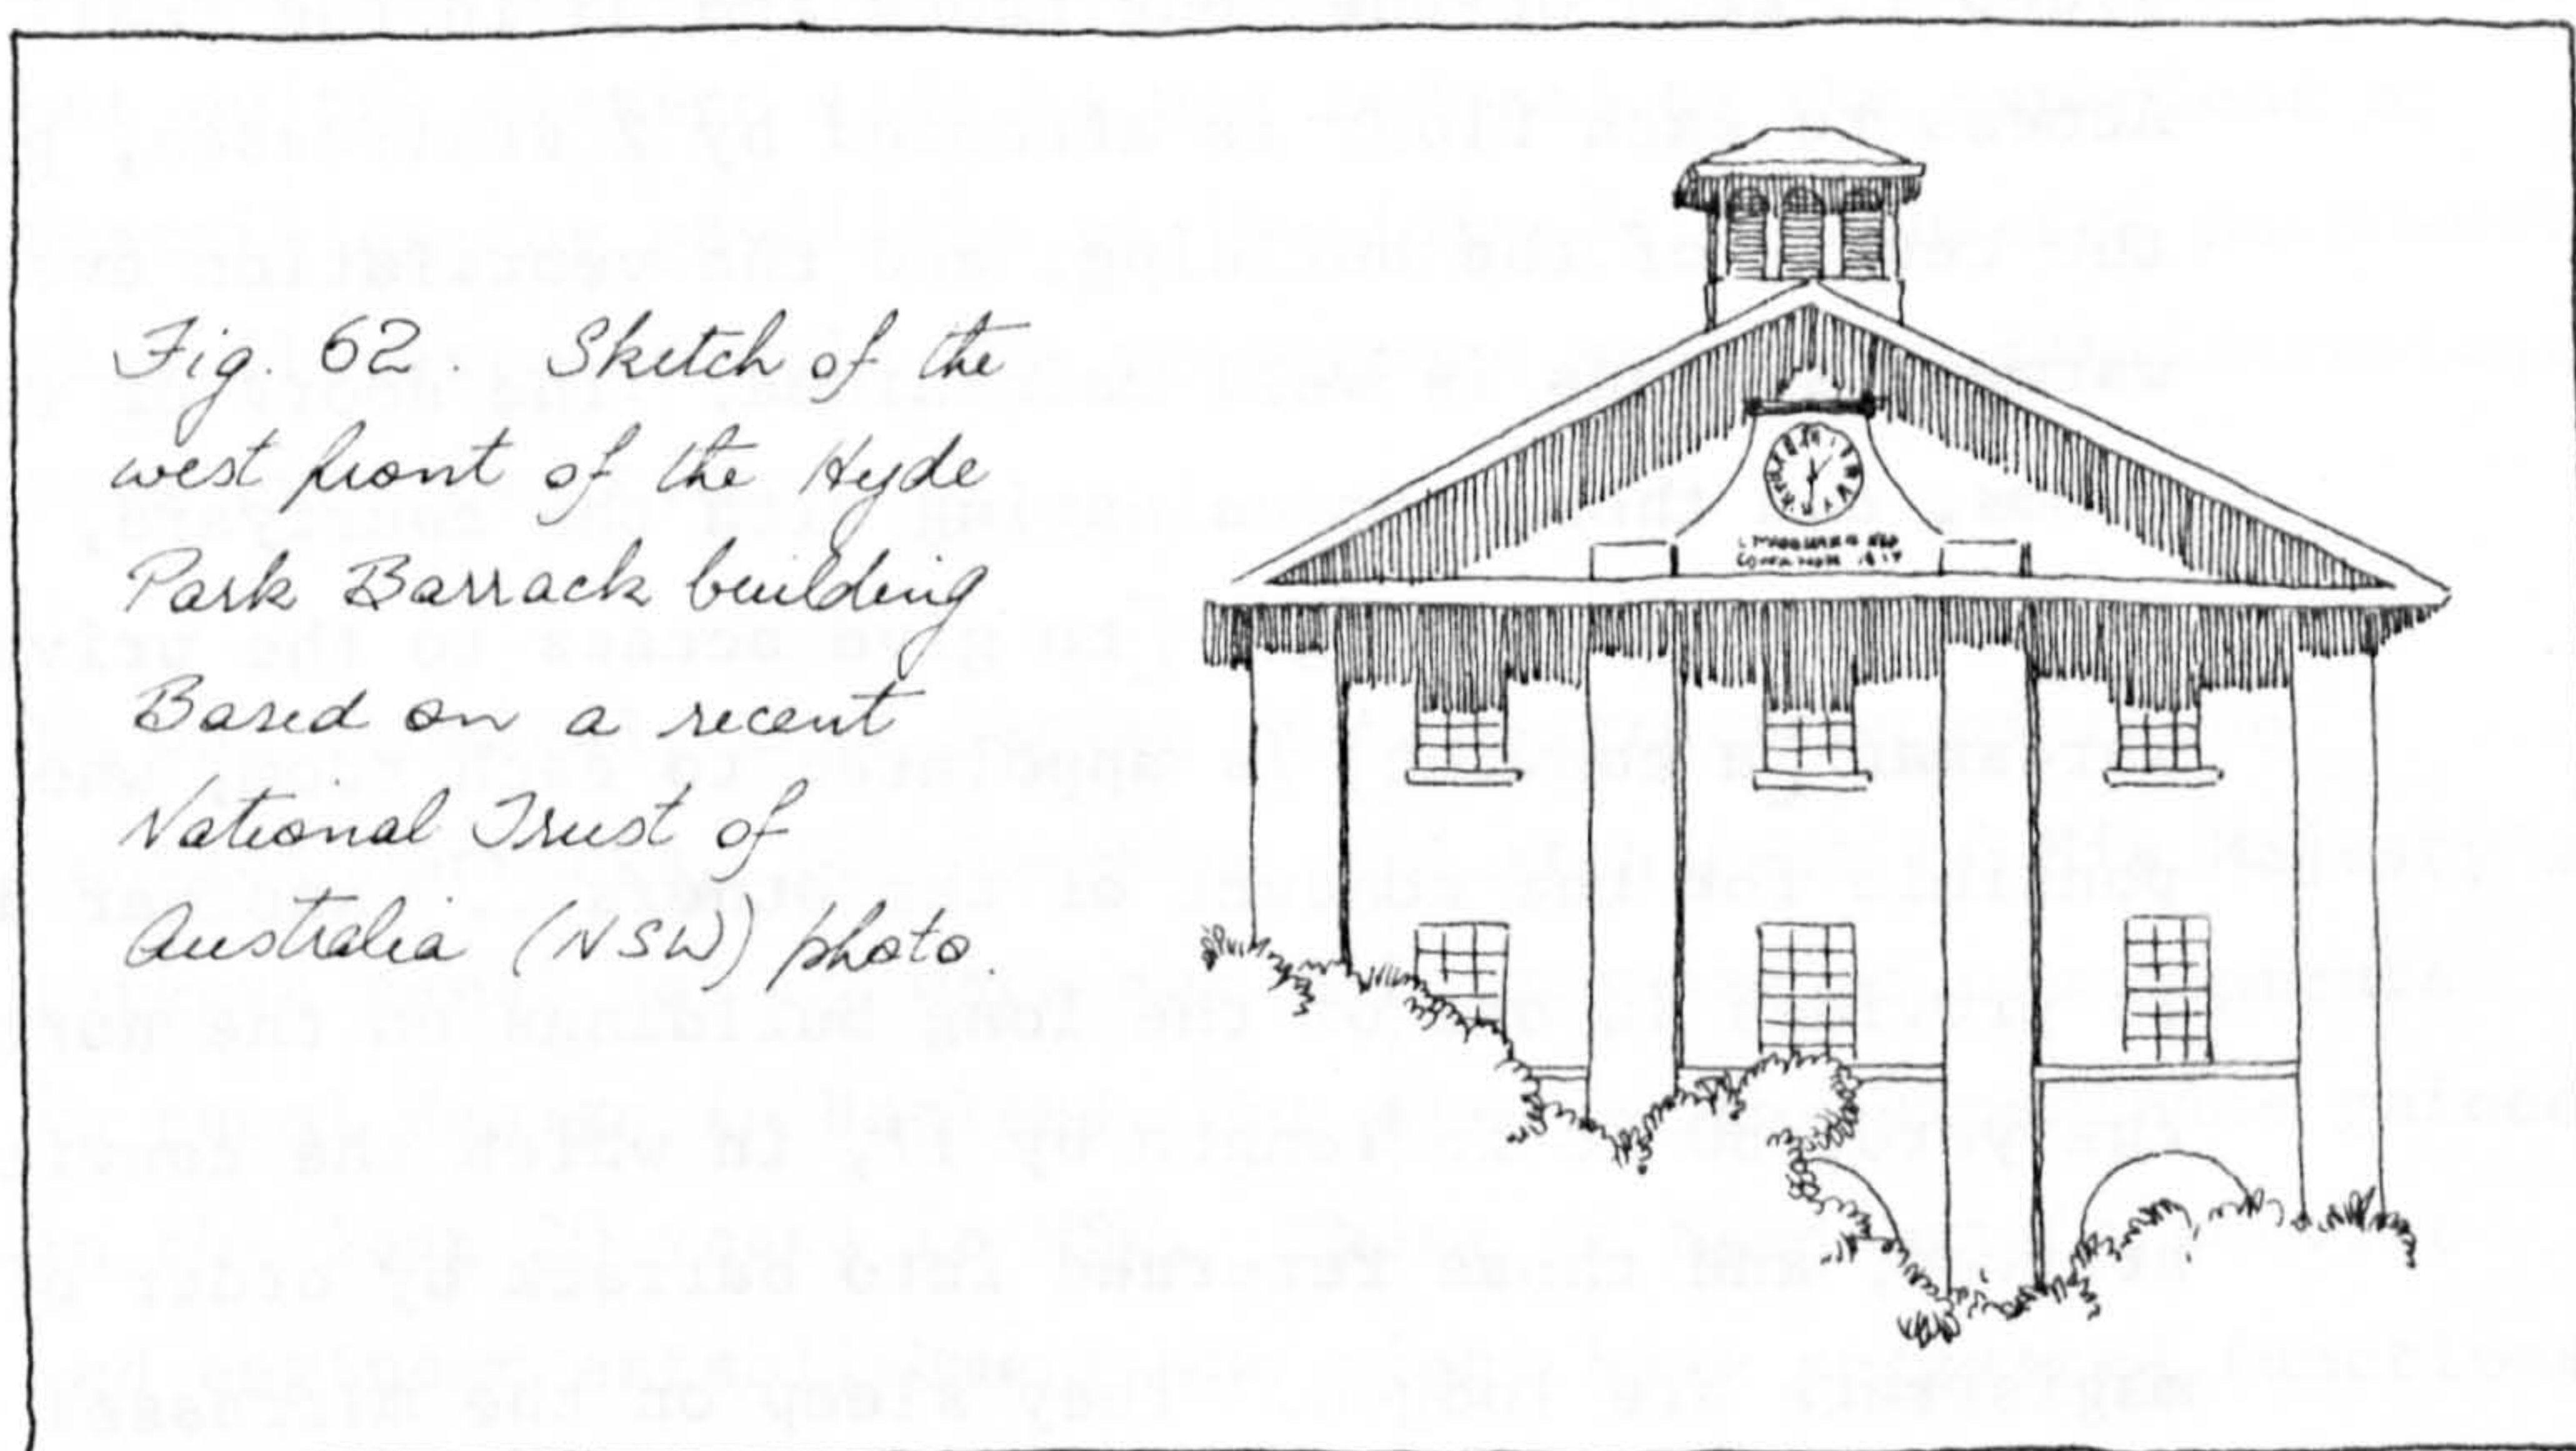 Fig. 62. Sketch of the
west front of the Hyde
Park Barrack building
Based on a recent
National Trust of
Australia (NSW) photo.
GOVERNOR 1817